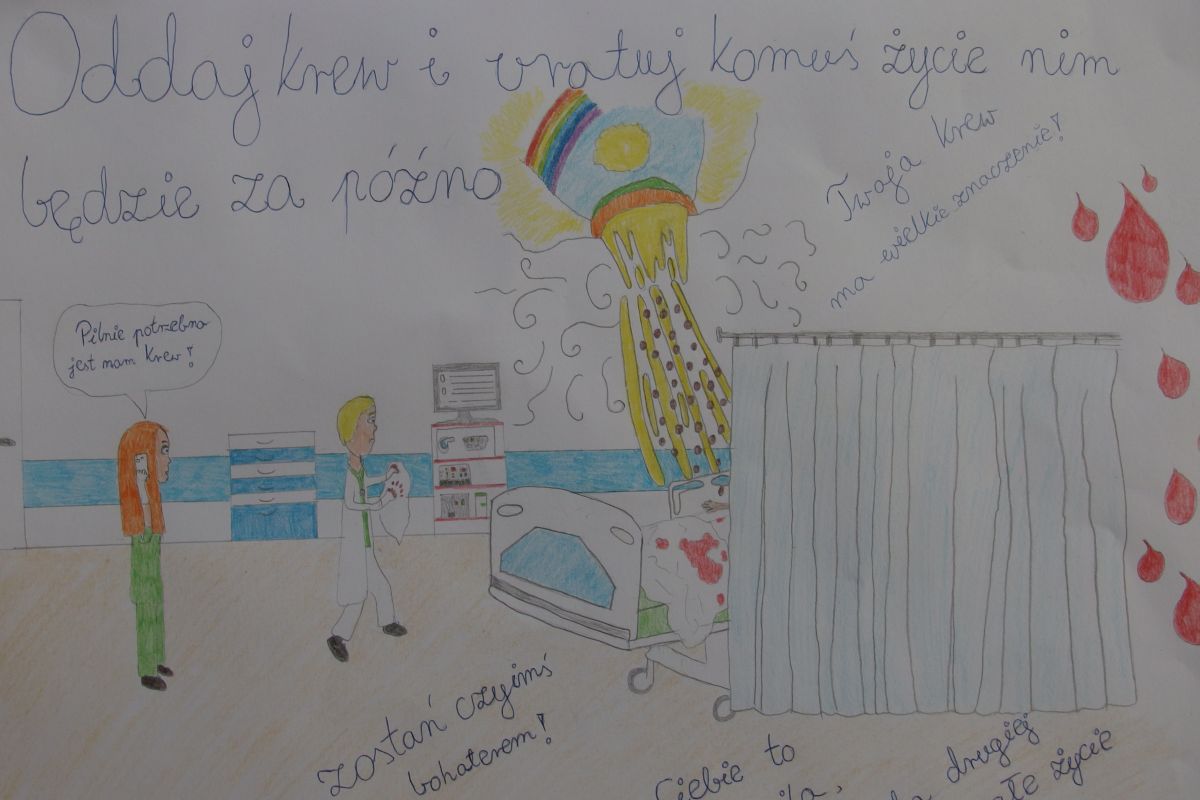 Oddaj krew i uratuj komuś życie nim
będzie za późno
Twoja krew
ma wielkie znaczenie!
Pilnie potrzebna
jest nam krew!
zostań czyimś
bohaterem!
Ciebie to
drugiej
życie